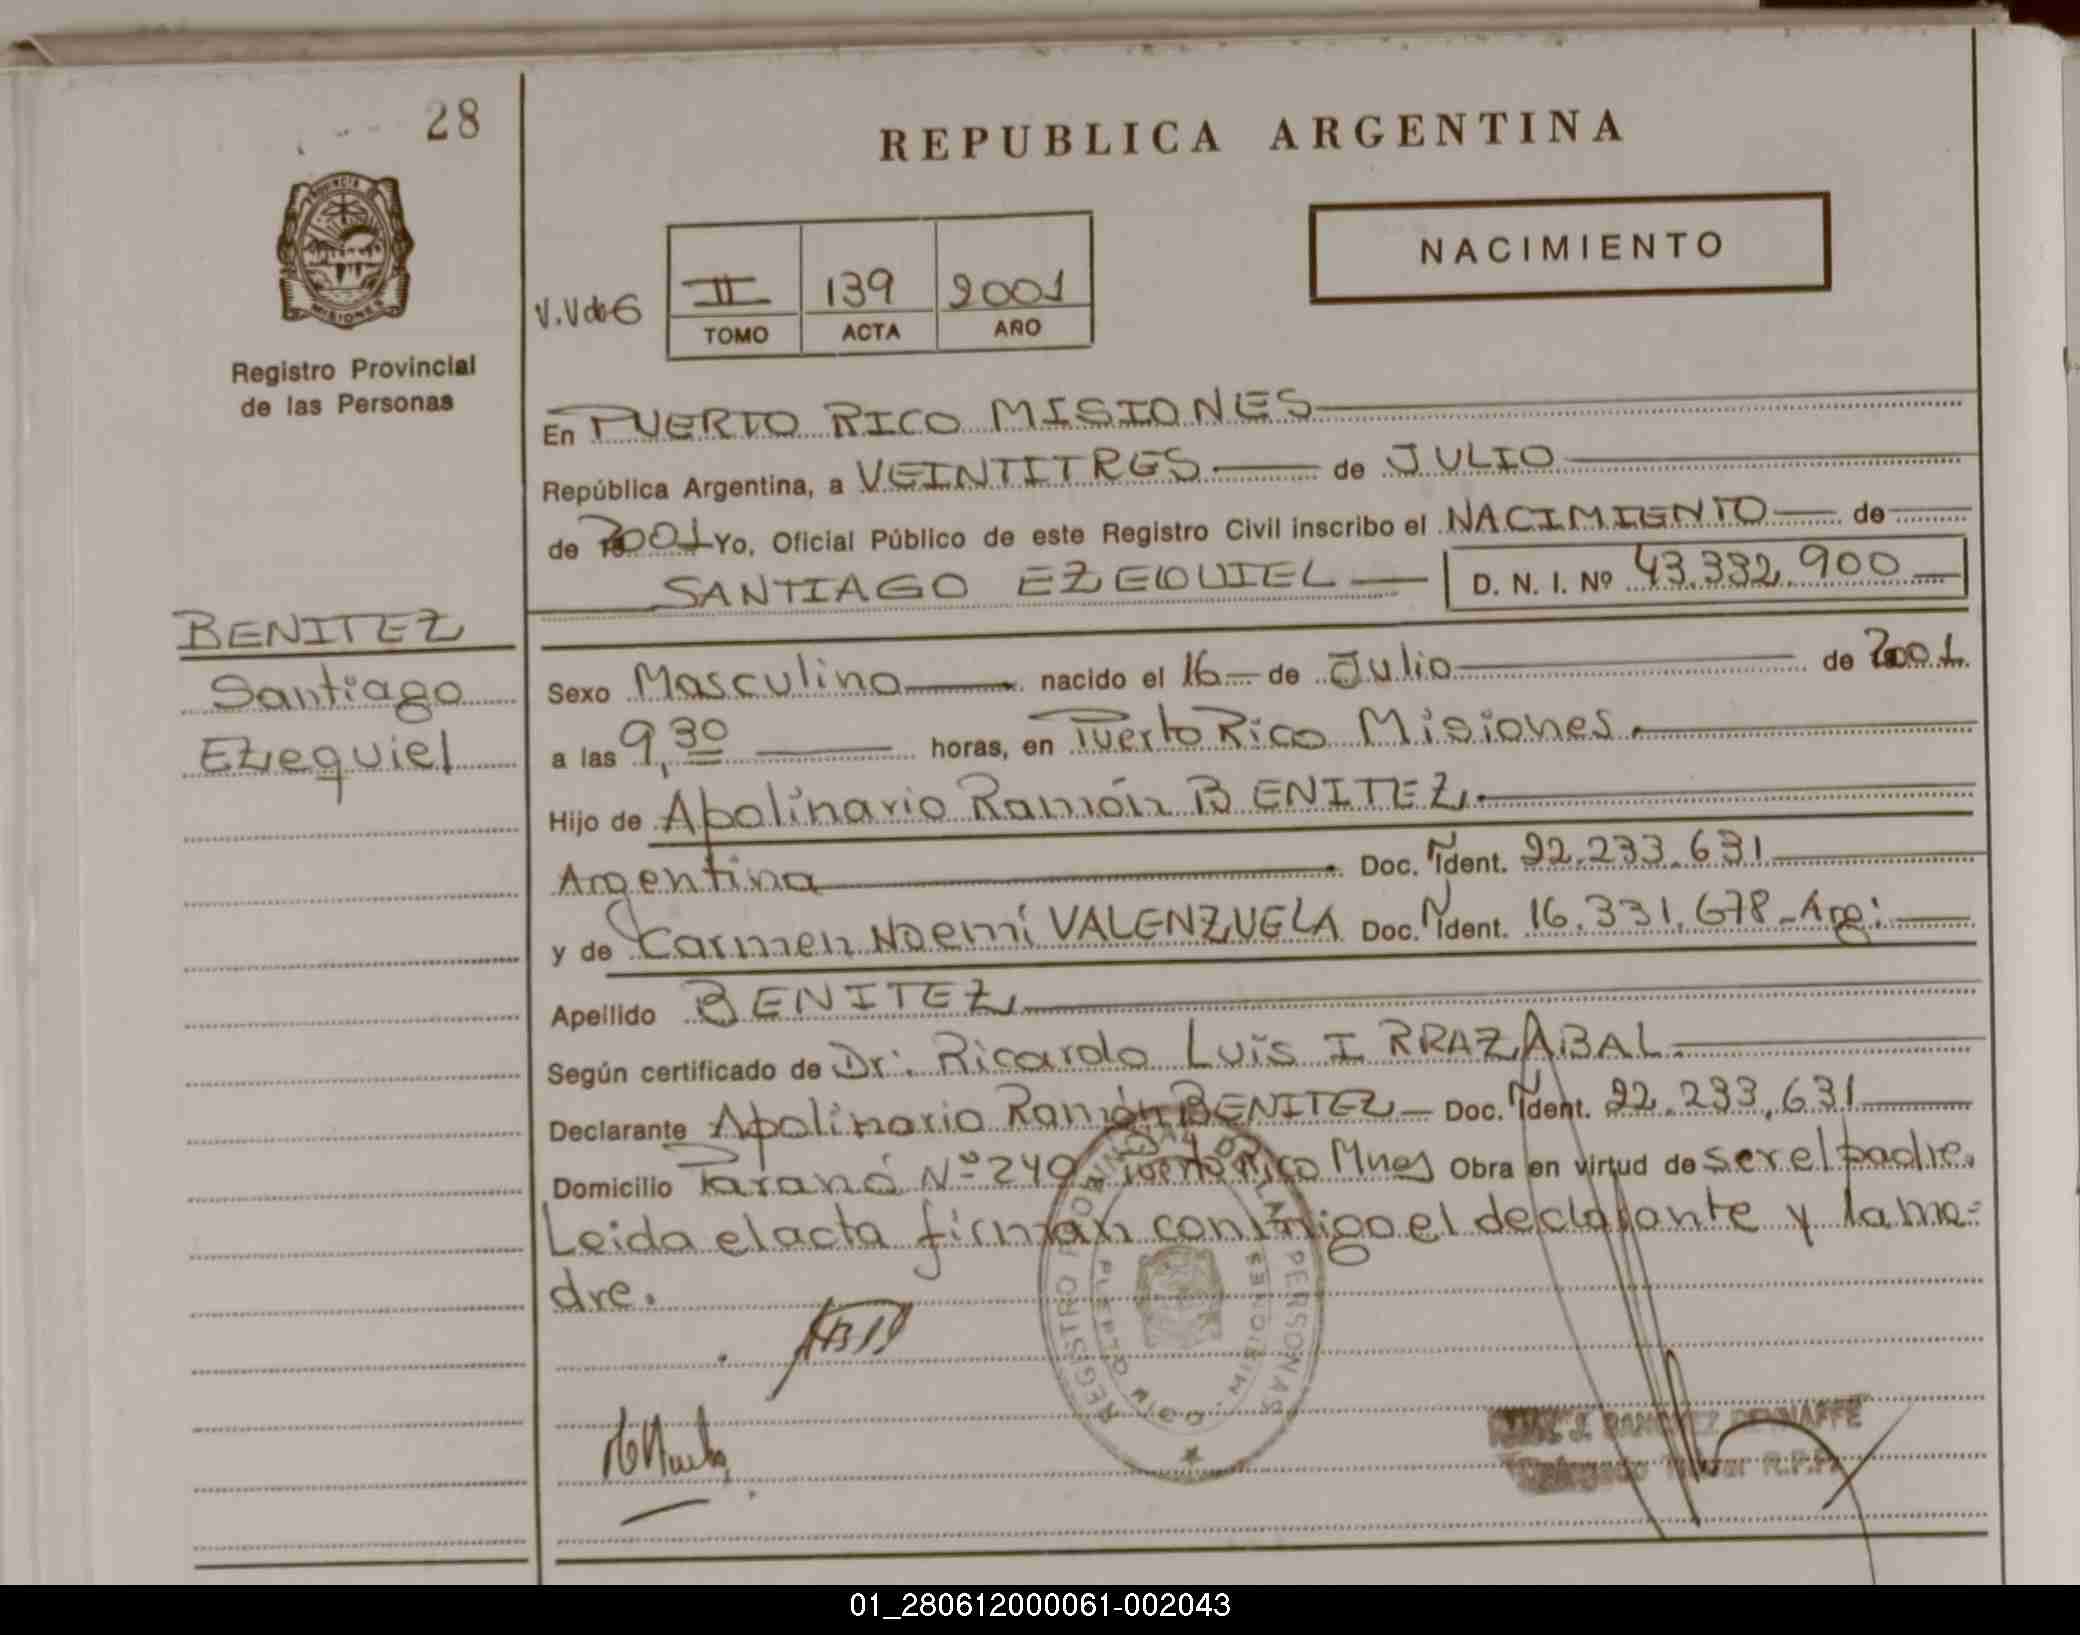 28
REPUBLICA ARGENTINA
NACIMIENTO
PROVINCIA DE
MISIONES
Registro Provincial
de las Personas
II 139 2001
TOMO ACTA AÑO
En PUERTO RICO MISIONES
República Argentina, a VEINTITRES de JULIO
de 2001 Yo, Oficial Público de este Registro Civil inscribo el NACIMIENTO de
SANTIAGO EZEQUIEL D. N. I. Nº 43.332.900
BENITEZ
Santiago
Ezequiel
Sexo Masculino nacido el 16 de Julio de 2001
a las 9,30 horas, en Puerto Rico Misiones.
Hijo de Apolinario Ramón BENITEZ.
Argentina Doc. Ident. 22.233.631
y de Carmen Noemí VALENZUELA Doc. Ident. 16.331.678 - Arg:
Apellido BENITEZ
Según certificado de Dr: Ricardo Luis IRRAZABAL
Declarante Apolinario Ramón BENITEZ Doc. Ident. 22.233.631
Domicilio Paraná Nº 249 Puerto Rico Mnes Obra en virtud de ser el padre.
Leida el acta firman conmigo el declarante y la ma=
dre.
REGISTRO PROVINCIAL DE LAS PERSONAS
PUERTO RICO MISIONES
R.P.P.
01_280612000061-002043